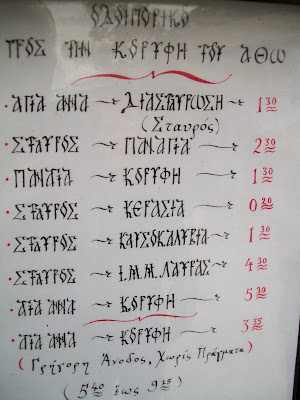 ΟΔΟΙΠΟΡΙΚΟ
ΠΡΟΣ ΤΗΝ ΚΟΡΥΦΗ ΤΟΥ ΑΘΩ
· ΑΓΙΑ ΑΝΝΑ → ΔΙΑΣΤΑΥΡΩΣΗ → 1 30
(Σταυρός)
· ΣΤΑΥΡΟΣ → ΠΑΝΑΓΙΑ → 2 30
· ΠΑΝΑΓΙΑ → ΚΟΡΥΦΗ → 1 30
· ΣΤΑΥΡΟΣ → ΚΕΡΑΣΙΑ → 0 20
· ΣΤΑΥΡΟΣ → ΚΑΥΣΟΚΑΛΥΒΙΑ → 1 30
· ΣΤΑΥΡΟΣ → Ι.Μ.Μ. ΛΑΥΡΑΣ → 4 30
· ΑΓΙΑ ΑΝΝΑ → ΚΟΡΥΦΗ → 5 30
· ΑΓΙΑ ΑΝΝΑ → ΚΟΡΥΦΗ → 3 35
(Γρήγορη Άνοδος, Χωρίς Πράγματα)
(5 40 έως 9 15)